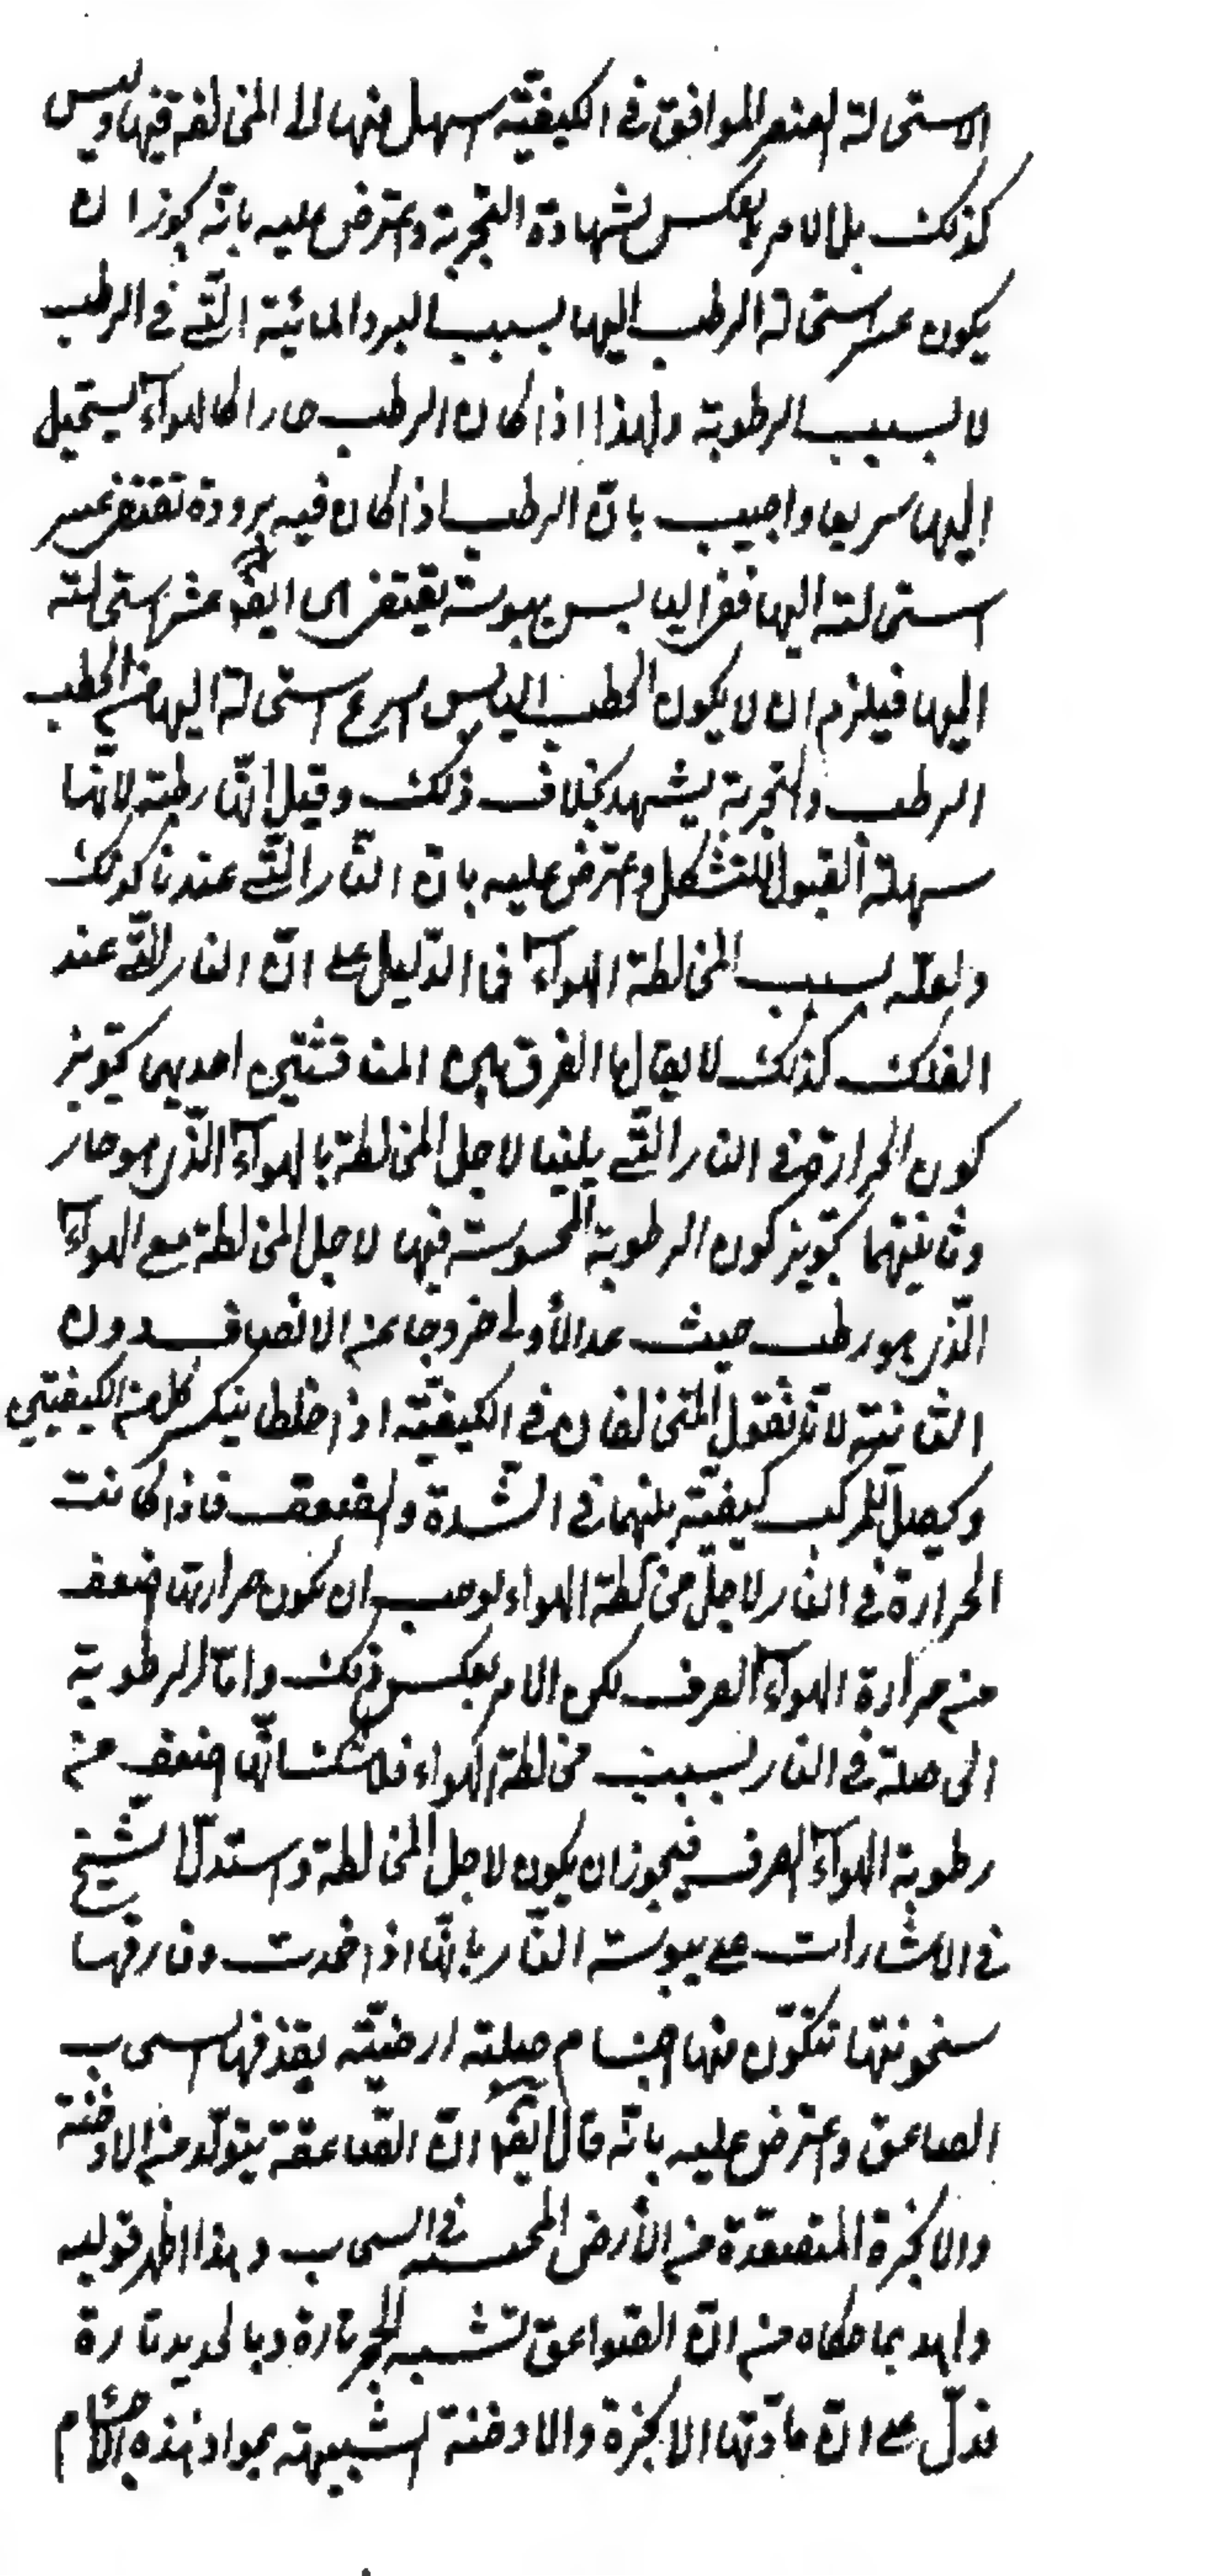 الاستحالة العنصر الموافق في الكيفية اسهل منها الى المخالفة فيها وليس
كذلك بل الامر بالعكس لشهادة التجربة واعترض عليه بانه يجوز ان
يكون عسر استحالة الرطب اليها بسبب البرد المائية التي في الرطب
لا لسبب الرطوبة ولهذا اذا كان الرطب حارا كالهوآء يستحيل
اليها سريعا واجيب بان الرطب اذا كان فيه برودة تقتضي عسر
استحالته اليها ففي اليابس يبوسة يقتضي ايضا عسر استحالته
اليها فيلزم ان لا يكون الحطب اليابس اسرع استحالة اليها من الحطب
الرطب والتجربة يشهد بخلاف ذلك وقيل انّها رطبة لانّها
سهلة القبول للتشكل واعترض عليه بانّ النّار الّتي عندنا كذلك
ولعلّه بسبب المخالطة الهوآء فما الدّليل على انّ النار الّتي عند
الفلك كذلك لا يقال ما الفرق بين المناقشتين احديهما تجويز
كون الحرارة في النار الّتي يلينا لاجل المخالطة بالهوآء الّذي هو حار
وثانيتهما تجويز كون الرطوبة المحسوسة فيها لاجل المخالطة مع الهوآء
الّذي هو رطب حيث عد الأولى خروجا عن الانصاف دون
الثانية لانا نقول المتخالفان في الكيفيّة اذا اختلطا ينكسر كل من الكيفيتين
ويحصل للمركب كيفيّة بينهما في الشّدة والضعف فاذا كانت
الحرارة في النار لاجل مخالطة الهواء لوجب ان يكون حرارتها اضعف
من حرارة الهوآء الصرف لكن الامر بعكس ذلك وامّا الرطوبة
الحاصلة في النار بسبب مخالطة الهواء فلا شك انّها اضعف من
رطوبة الهوآء الصرف فيجوز ان يكون لاجل المخالطة واستدلّ الشّيخ
في الاشارات على يبوسة النّار بانّها اذا خمدت وفارقها
سخونتها تتكوّن منها اجسام صلبة ارضيّة يقذفها السحاب
الصاعق واعترض عليه بانّه قال ايضا انّ الصّاعقة يتولّد من الادخنة
والابخرة المتصعّدة من الأرض المحتبسة في السحاب وهذا اظهر قوليه
وايد بما حكاه من انّ الصّواعق تشبه الحجر تارة وبالحديد تارة
فدلّ على انّ مادّتها الابخرة والادخنة الشبيهة بمواد هذه الاجسام